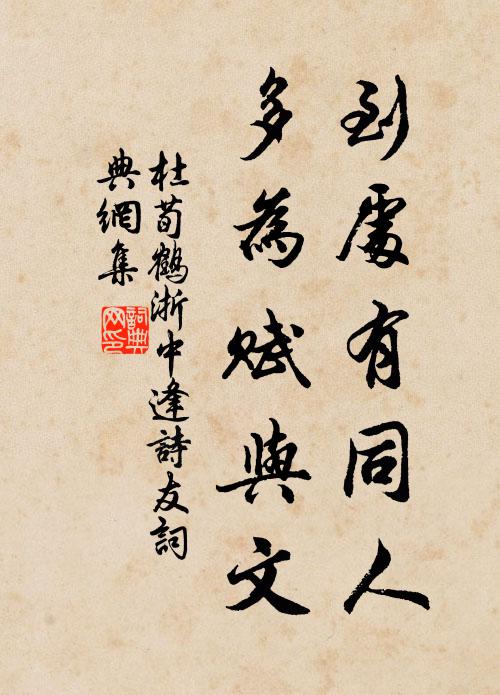 到處有同人
多為賦與文
杜荀鶴浙中逢詩友詞
典網集
詞典
网印